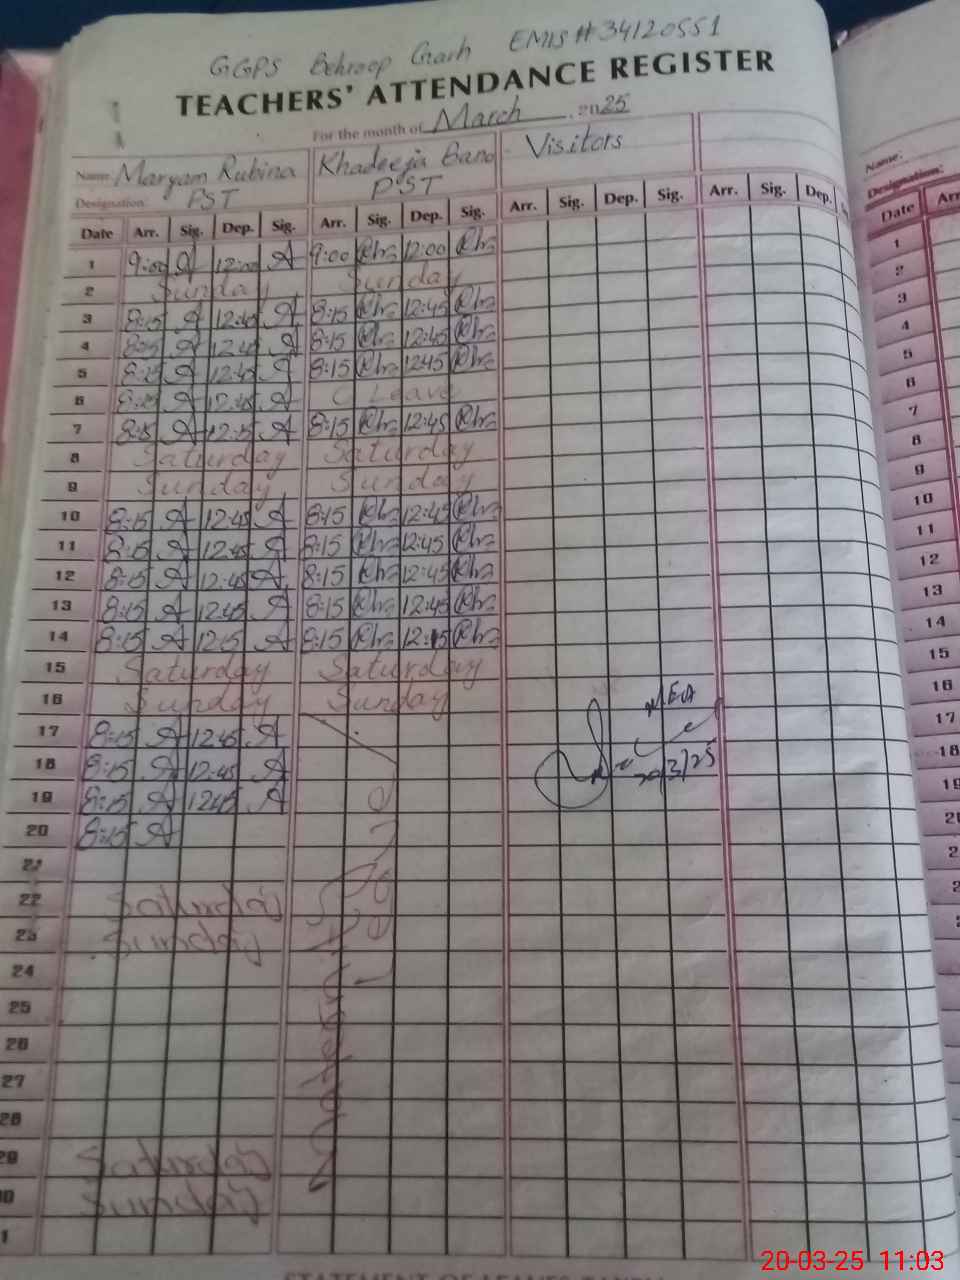 GGPS Behroop Garh EMIS # 34120551
TEACHERS' ATTENDANCE REGISTER
For the month of March 2025
Name: Maryam Rubina Khadeeja Bano Visitors
Designation: PST PST
Date Arr. Sig. Dep. Sig. Arr. Sig. Dep. Sig. Arr. Sig. Dep. Sig. Arr. Sig. Dep.
1 9:00 A 12:00 A 9:00 Kh 12:00 Kh
2 Sunday Sunday
3 8:15 A 12:45 A 8:15 Kh 12:45 Kh
4 8:15 A 12:45 A 8:15 Kh 12:45 Kh
5 8:15 A 12:45 A 8:15 Kh 12:45 Kh
6 8:15 A 12:45 A C Leave
7 8:15 A 12:15 A 8:15 Kh 12:45 Kh
8 Saturday Saturday
9 Sunday Sunday
10 8:15 A 12:45 A 8:15 Kh 12:45 Kh
11 8:15 A 12:45 A 8:15 Kh 12:45 Kh
12 8:15 A 12:45 A 8:15 Kh 12:45 Kh
13 8:15 A 12:45 A 8:15 Kh 12:45 Kh
14 8:15 A 12:15 A 8:15 Kh 12:15 Kh
15 Saturday Saturday
16 Sunday Sunday
MEA
17 8:15 A 12:45 A
18 8:15 A 12:45 A
20/3/25
19 8:15 A 12:45 A
20 8:15 A
21
22 Saturday
23 Sunday
24
25
26
27
28
29 Saturday
30 Sunday
1
Name:
Designation:
Date Arr
1
2
3
4
5
6
7
8
9
10
11
12
13
14
15
16
17
18
19
20-03-25 11:03